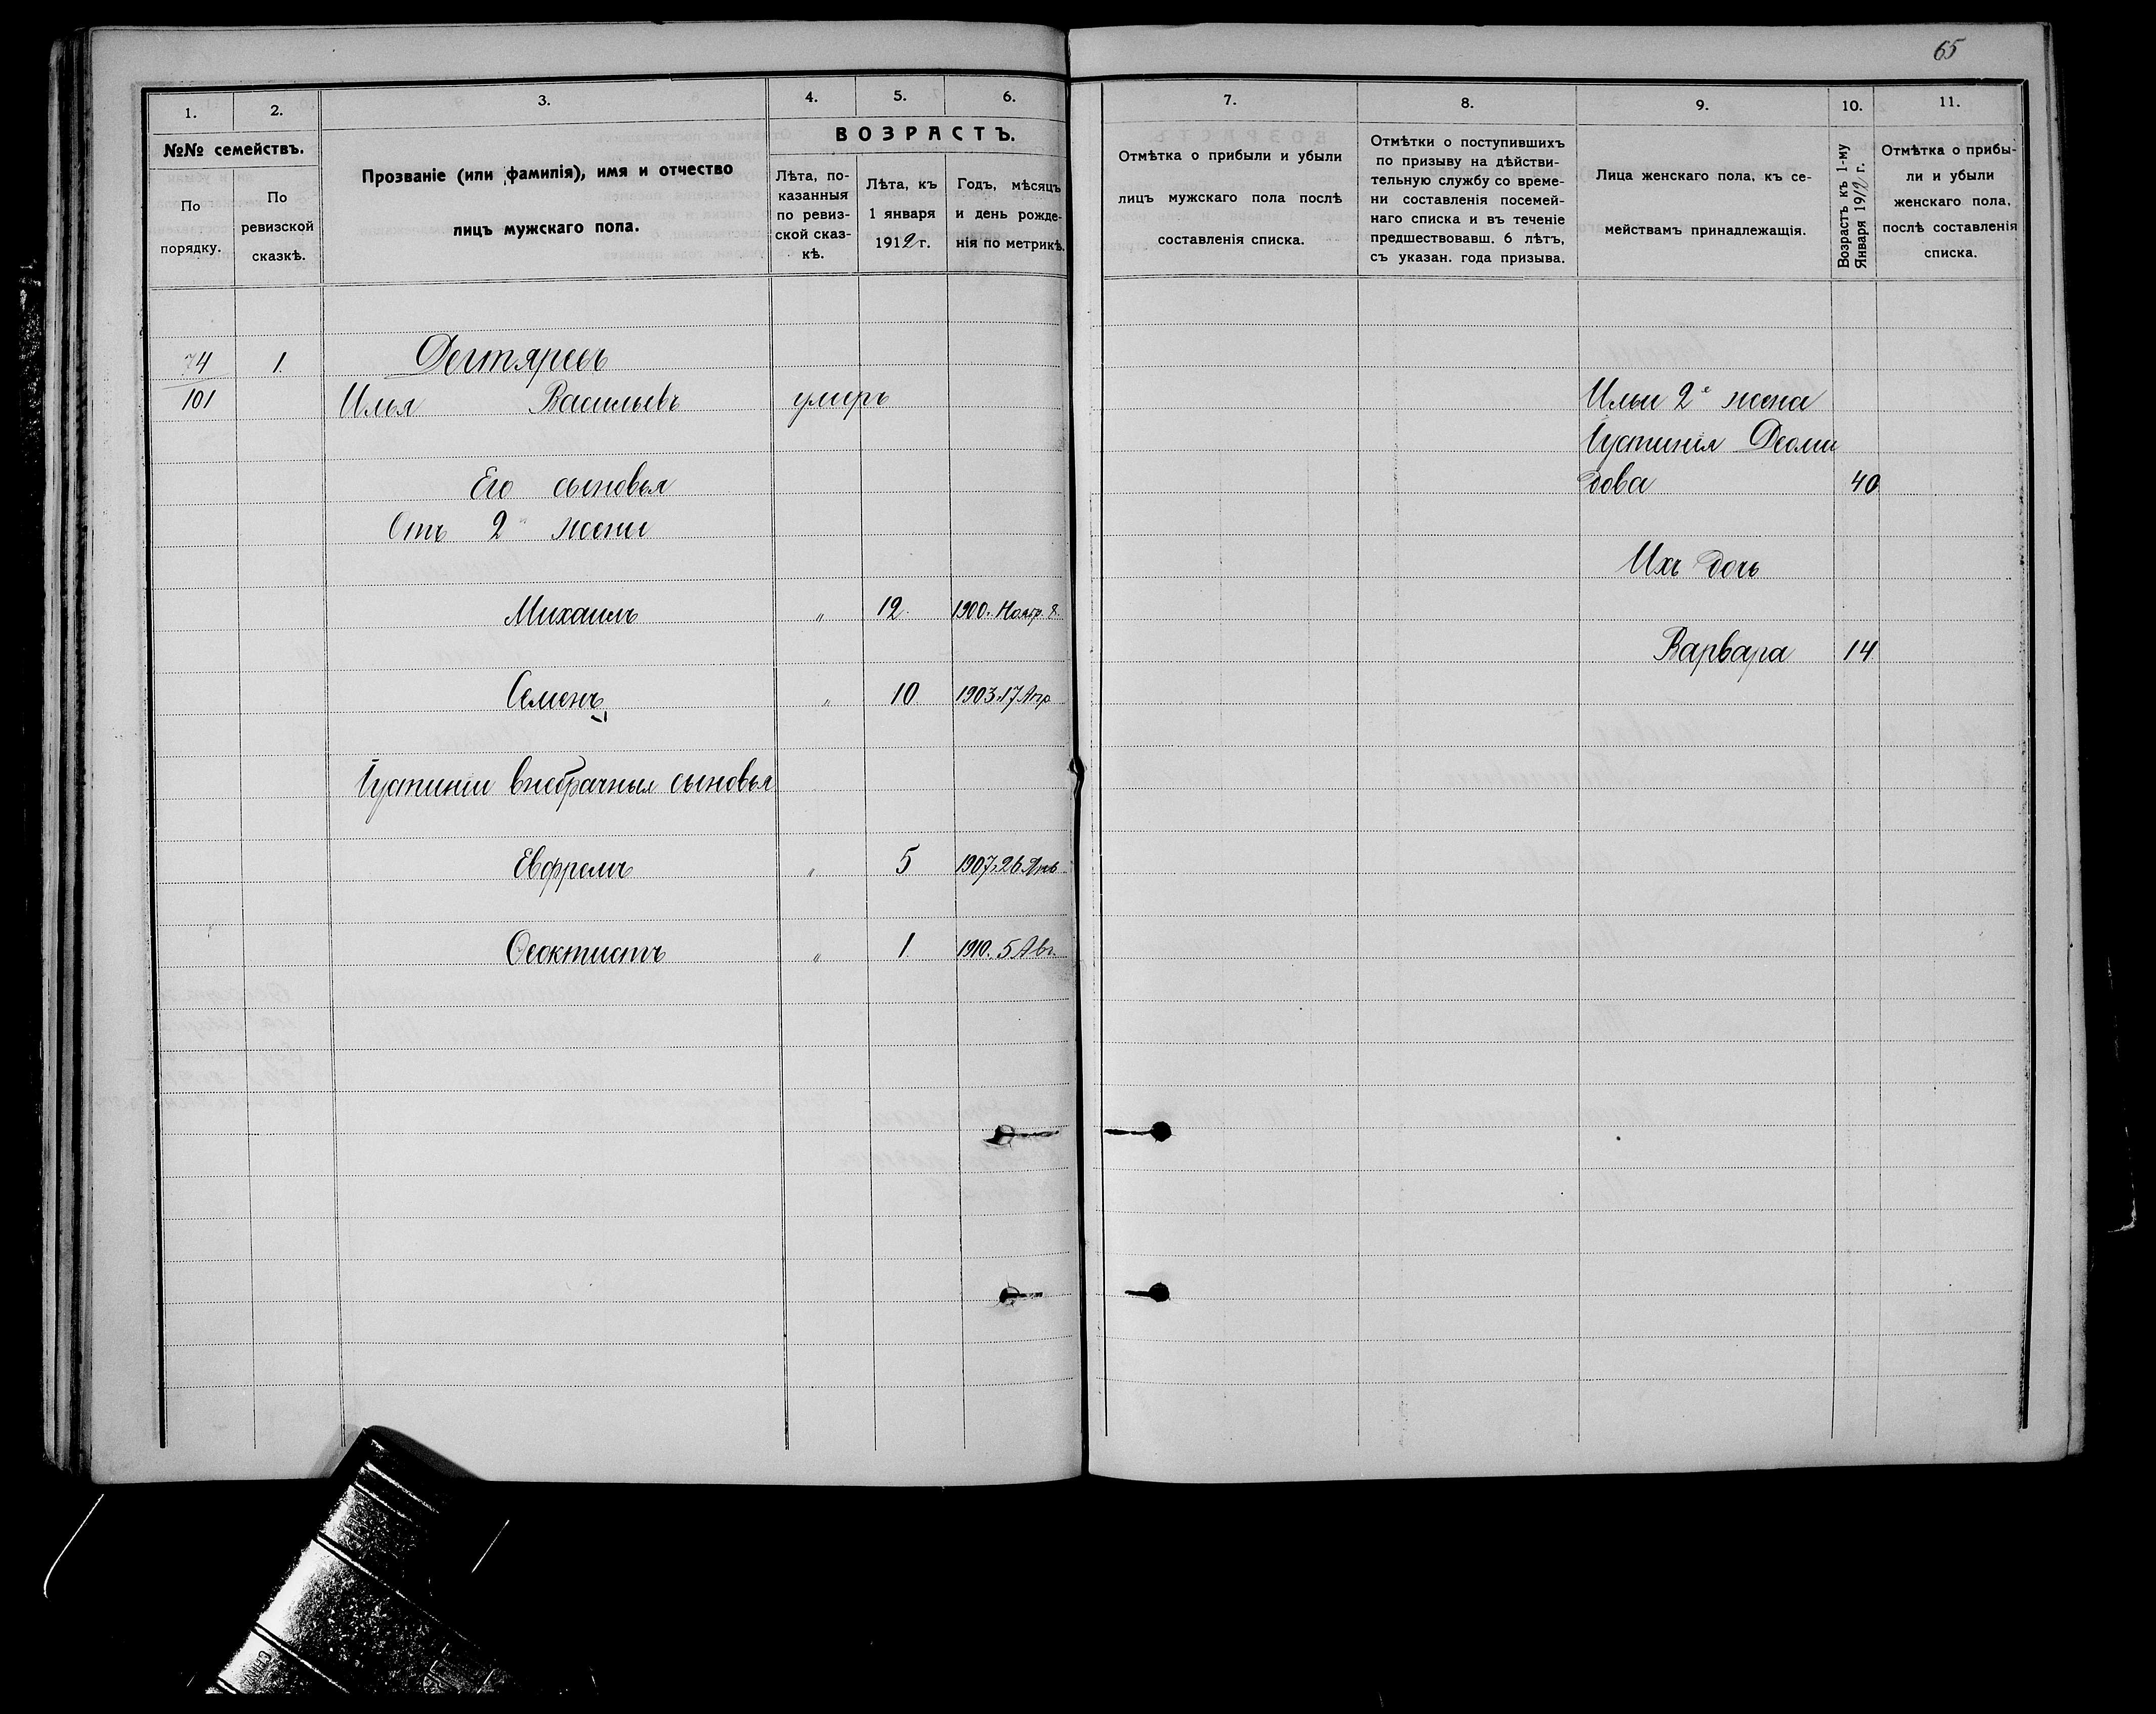 65
1. 2. 3. 4. 5. 6.
№№ семействъ.
По порядку.
По ревизской сказкѣ.
Прозваніе (или фамилія), имя и отчество
лицъ мужскаго пола.
ВОЗРАСТЪ.
Лѣта, по-
казанныя
по ревиз-
ской сказ-
кѣ.
Лѣта, къ
1 января
1912 г.
Годъ, мѣсяцъ
и день рожде-
нія по метрикѣ.
74 1. Дегтяревъ
101 Илья Васильевъ умеръ
Его сыновья
Отъ 2й жены
Михаилъ " 12. 1900. Ноябр. 8.
Семенъ " 10. 1903. 17 Апр
Іустиніи внебрачныя сыновья
Евфремъ " 5 1907. 26 Янв
Ѳеоктистъ " 1. 1910. 5 Авг.
7. 8. 9. 10. 11.
Отмѣтка о прибыли и убыли
лицъ мужскаго пола послѣ
составленія списка.
Отмѣтки о поступившихъ
по призыву на дѣйстви-
тельную службу со време-
ни составленія посемей-
наго списка и въ теченіе
предшествовавш. 6 лѣтъ,
съ указан. года призыва.
Лица женскаго пола, къ се-
мействамъ принадлежащія.
Возрастъ къ 1-му
Января 1912 г.
Отмѣтка о прибы-
ли и убыли
женскаго пола,
послѣ составленія
списка.
Ильи 2я жена
Іустинія Деоми
дова 40
Ихъ дочь
Варвара 14